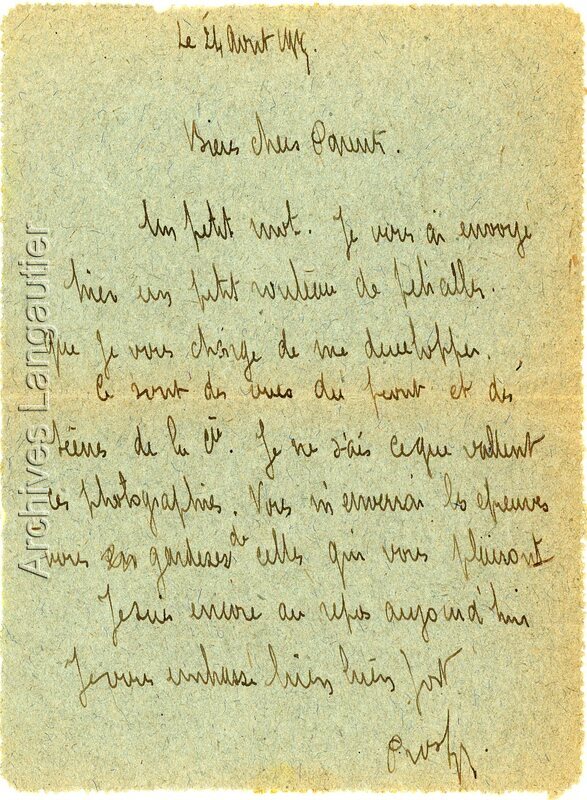 Le 24 Avril 1915.
Biens chers Parents.
Un petit mot. Je vous ai envoyé
hier un petit rouleau de
que je vous charge de me developper.
Ce sont des vues du front et des
scènes de la Cie. Je ne s'ais ce que vallent
ces photographies. Vous m'enverrai les épreuves
vous garderez de celles qui vous plairont
Je suis encore au repos aujourd'hui
Je vous embrasse bien biens fort
Archives Langautier